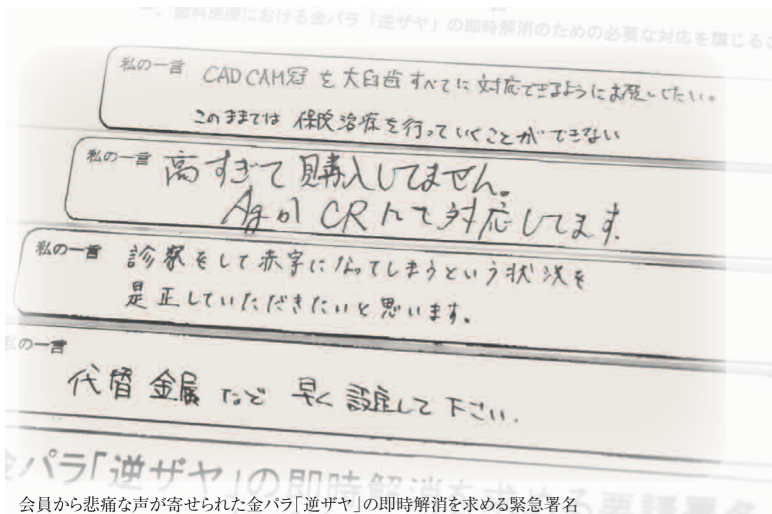 歯科医療における金パラ「逆ザヤ」の即時解消のための必要な対応を講じるこ
私の一言
CAD CAM冠を大臼歯すべてに対応できるようにお願いしたい。
このままでは保険治療を行っていくことができない
私の一言
高すぎて購入してません。
Ag か CR にて対応してます。
私の一言
診察をして赤字になってしまうという状況を
是正していただきたいと思います。
私の一言
代替金属など早く設定して下さい。
金パラ「逆ザヤ」の即時解消を求める要請署名
会員から悲痛な声が寄せられた金パラ「逆ザヤ」の即時解消を求める緊急署名